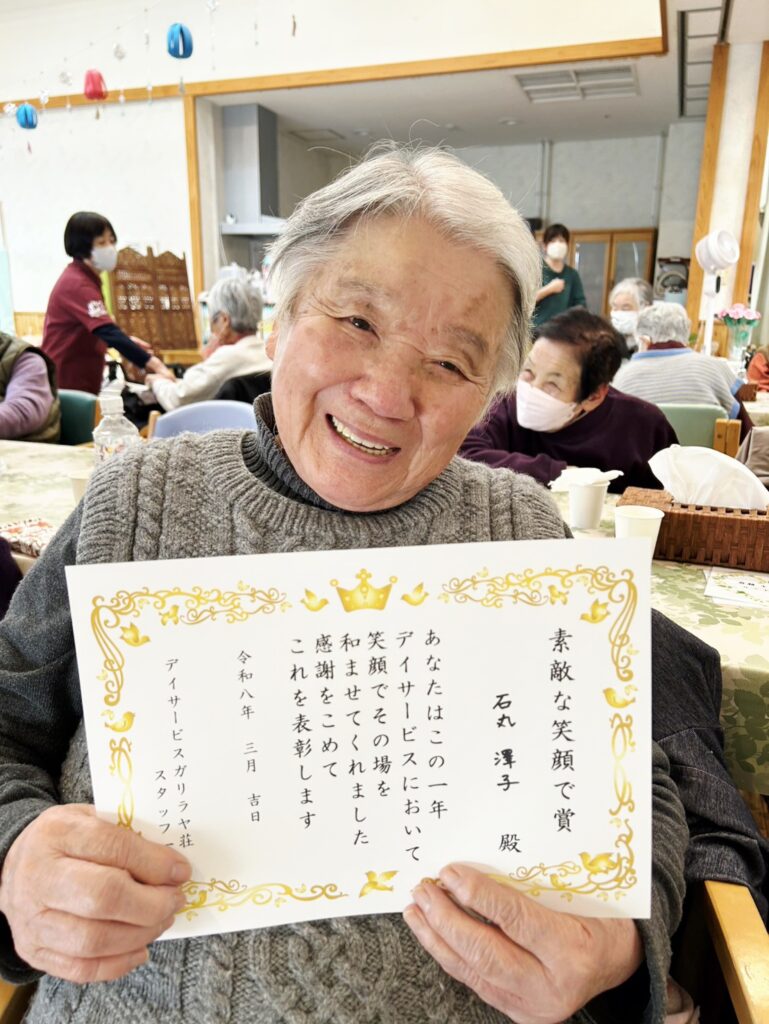 素敵な笑顔で賞
石丸 澤子 殿
あなたはこの一年
デイサービスにおいて
笑顔でその場を
和ませてくれました
感謝をこめて
これを表彰します
令和八年 三月 吉日
デイサービスガリラヤ荘
スタッフ一